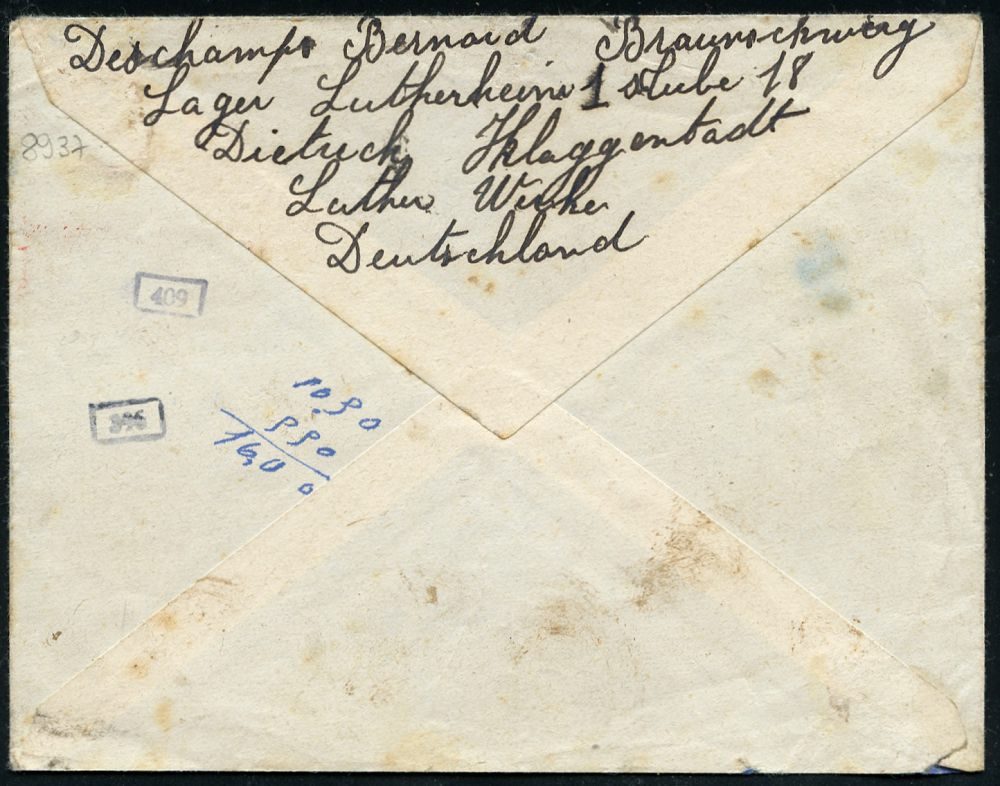 Deschamps Bernard Braunschweig
Lager Lutherheim 1 Stube 18
Dietrich Klaggenstadt
Luther Werke
Deutschland
8937
409
1090
990